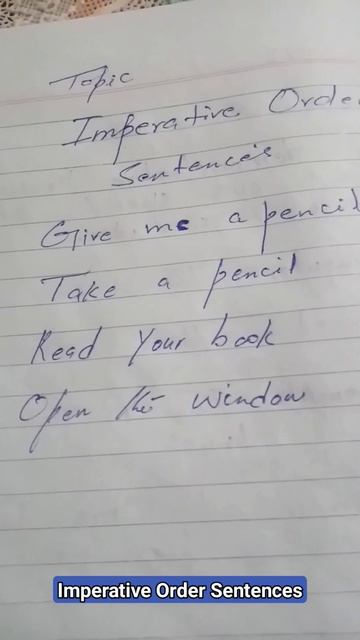 Topic
Imperative Orde
Sentences
Give me a pencil
Take a pencil
Read Your book
Open the window
Imperative Order Sentences